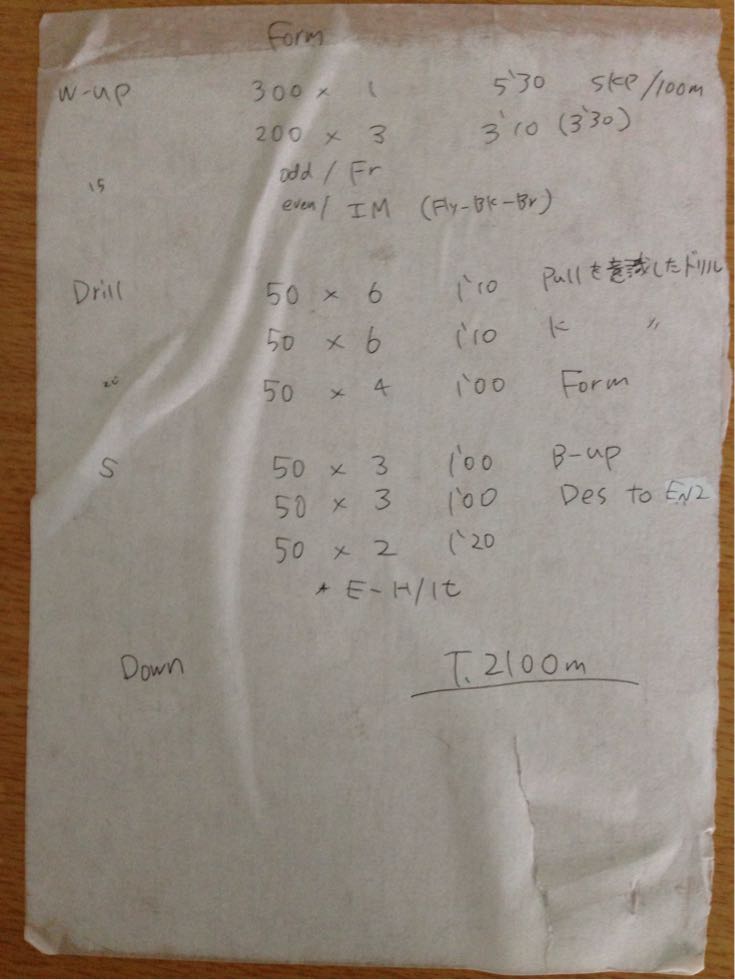 Form
W-up 300 × 1 5'30 SKP/100m
200 × 3 3'10 (3'30)
odd / Fr
15
even / IM (Fly-Bk-Br)
Drill 50 × 6 1'10 Pullを意識したドリル
50 × 6 1'10 K 〃
50 × 4 1'00 Form
S 50 × 3 1'00 B-up
50 × 3 1'00 Des to EN2
50 × 2 1'20
* E-H/1t
Down T. 2100m